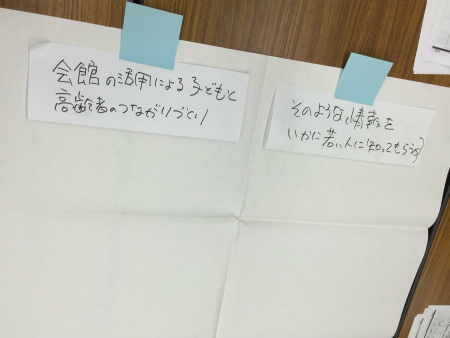 会館の活用による子どもと
高齢者のつながりづくり
そのような情報を
いかに若い人に知ってもらうか?